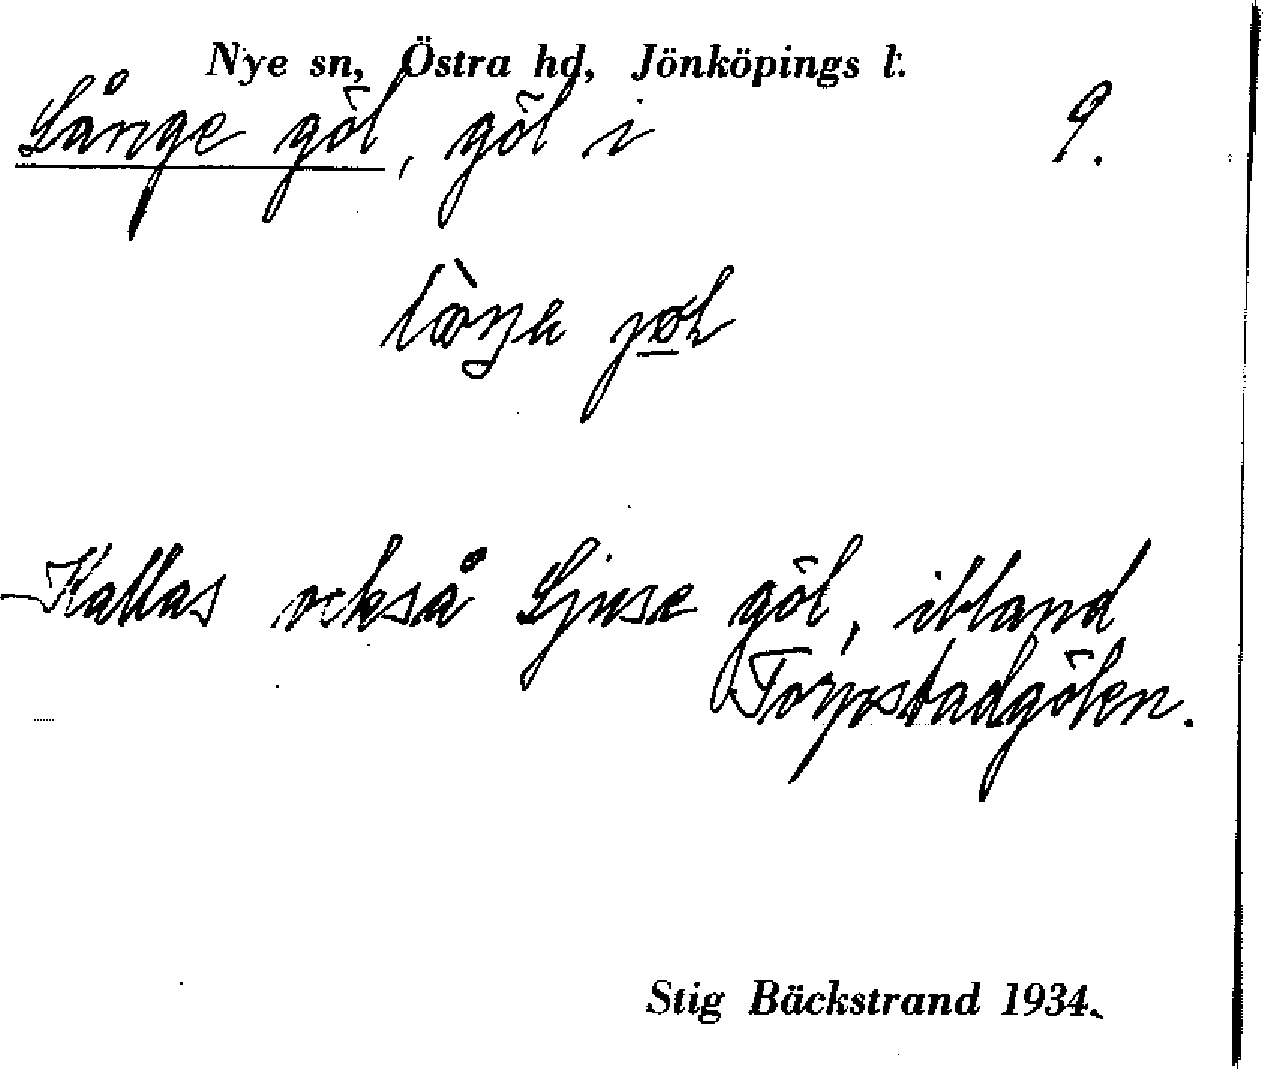 Nye sn, Östra hd, Jönköpings l.
Långe göl, göl i 9.
Kallas också Ljuse göl, ibland
Torpstadgölen.
Stig Bäckstrand 1934.